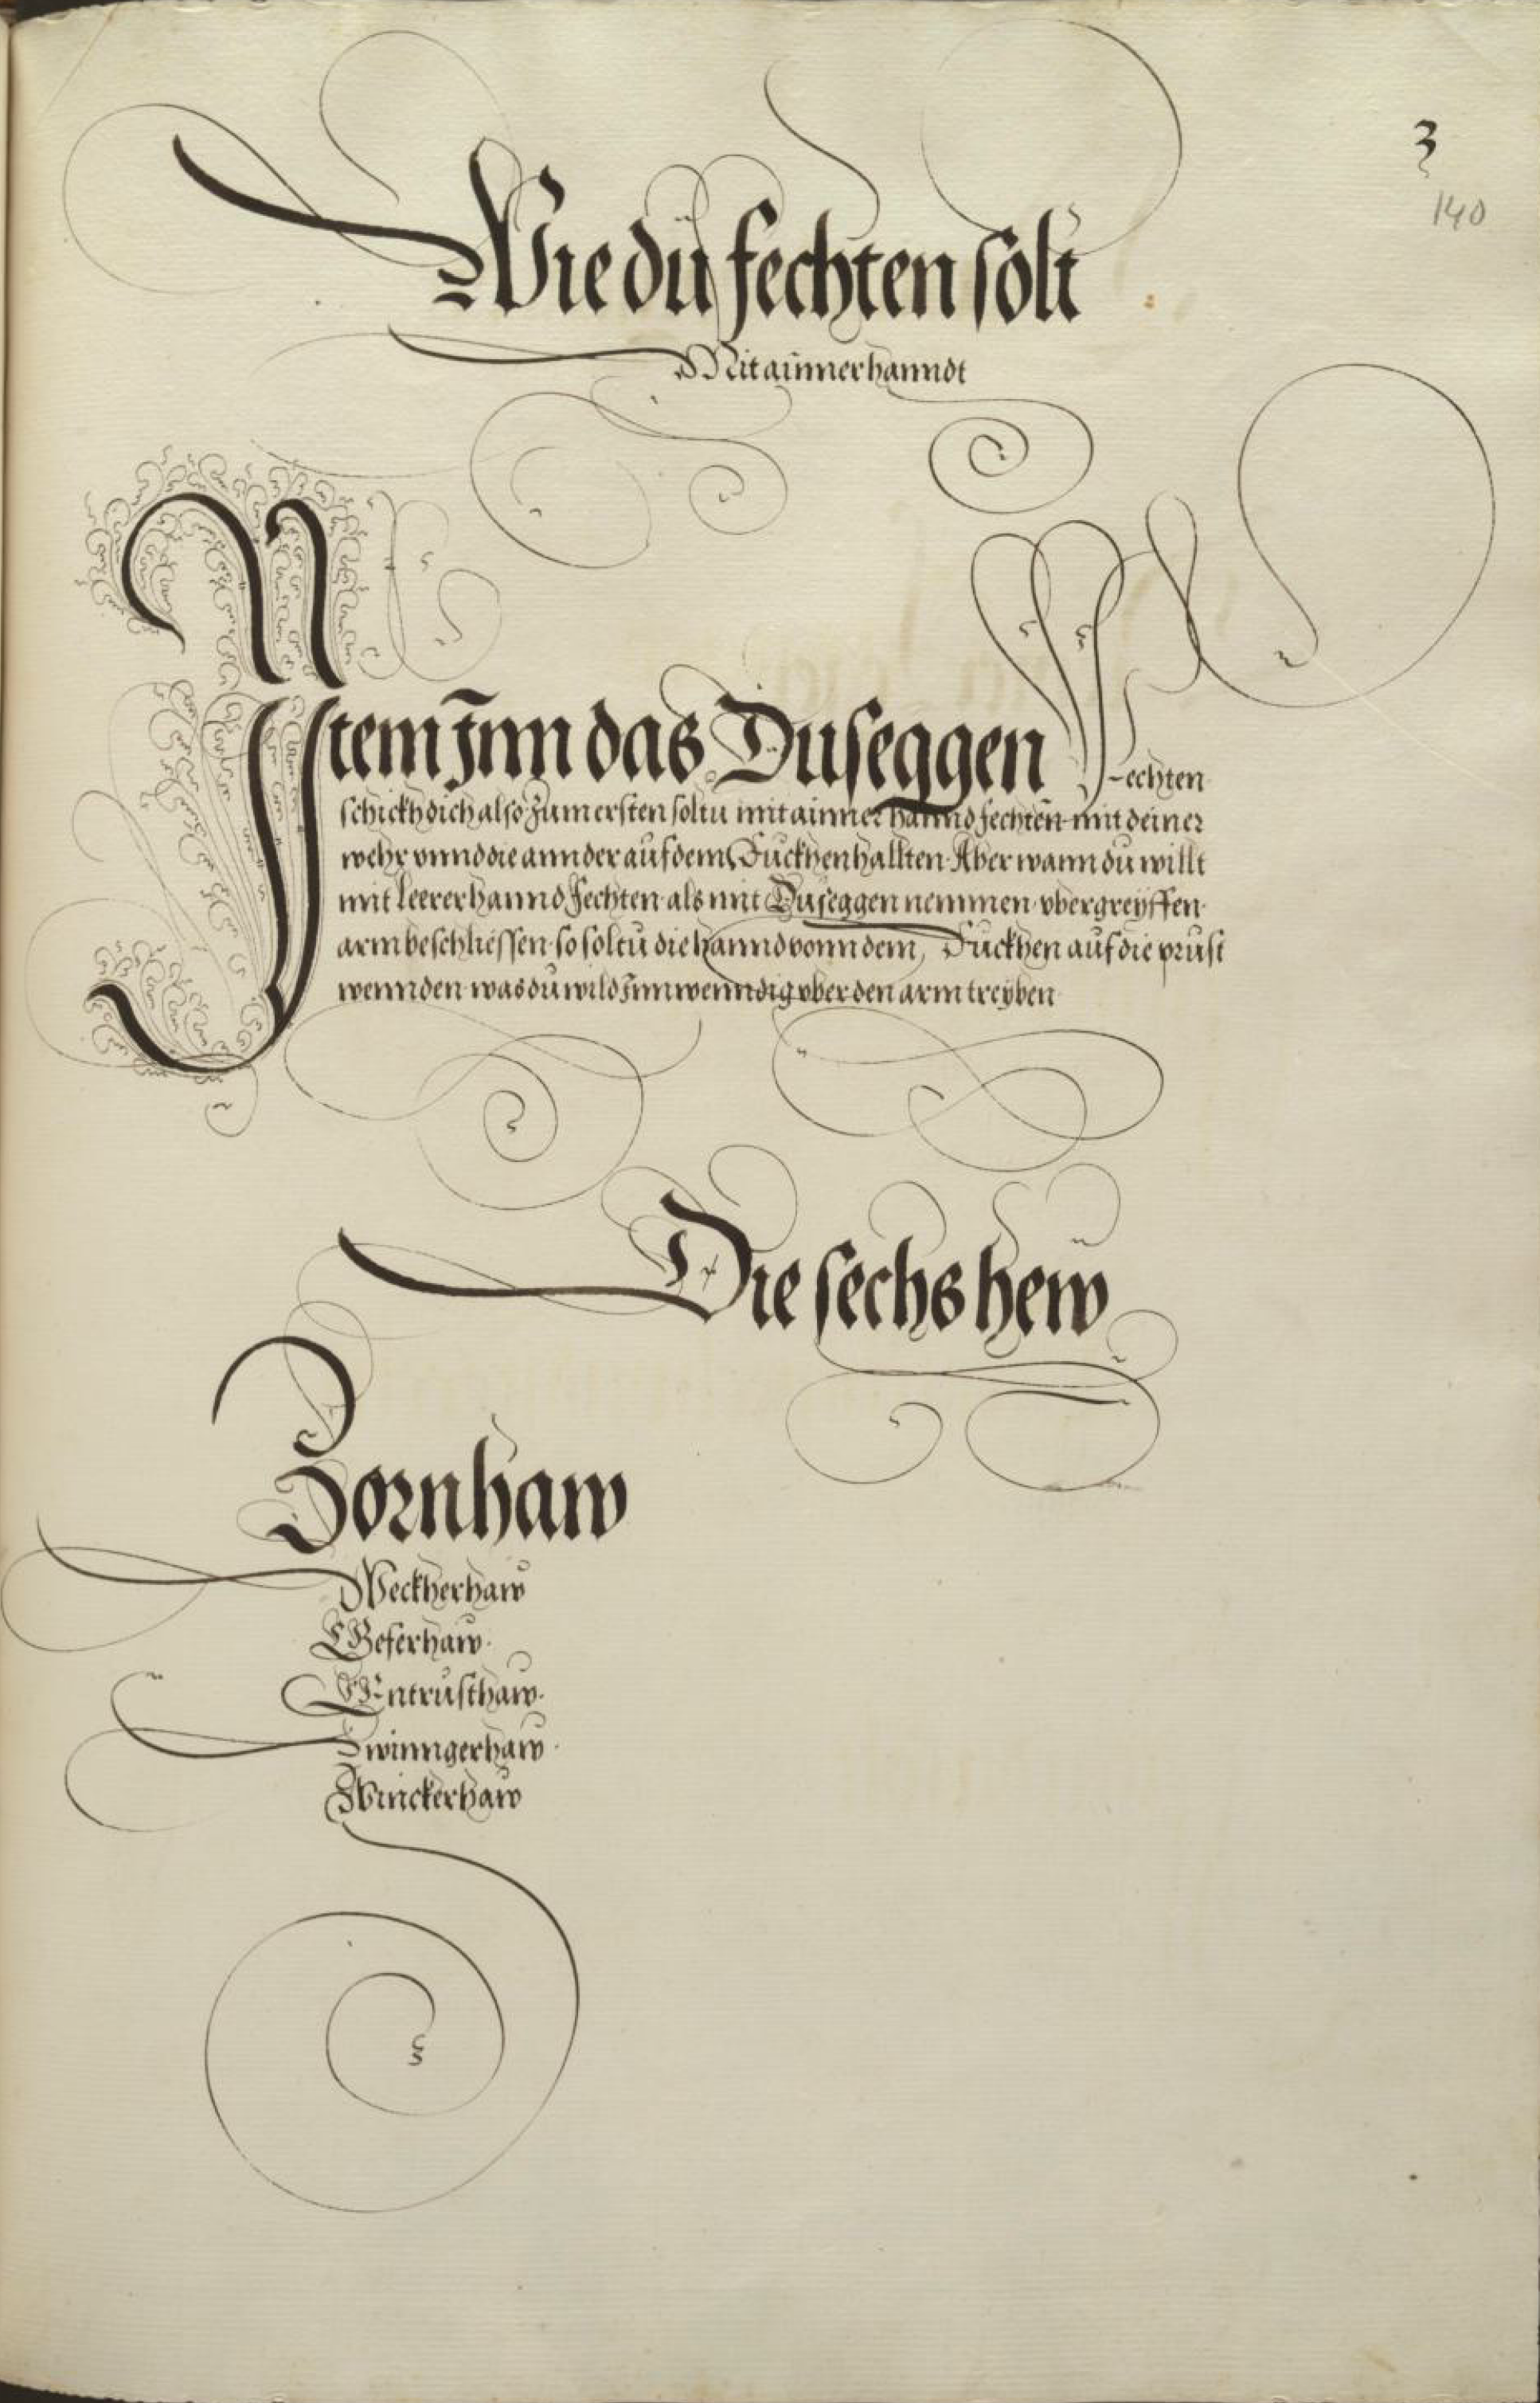 3
140
Wie du fechten solt
Mit ainner hanndt
Item Inn das Duseggen Fechten
schickh dich also Zum ersten soltu mit ainner hannd fechten mit deiner
wehr vnnd die annder auf dem Ruckhen hallten Aber wann du willt
mit leerer hannd Fechten als mit Duseggen nemmen vbergreyffen
arm beschliessen so soltu die hannd vonn dem Ruckhen auf die prust
wennden was du wild Innwenndig vber den arm treyben
Die sechs hew
Zornhaw
Weckherhaw
Entrusthaw
Zwinngerhaw
Winckerhaw